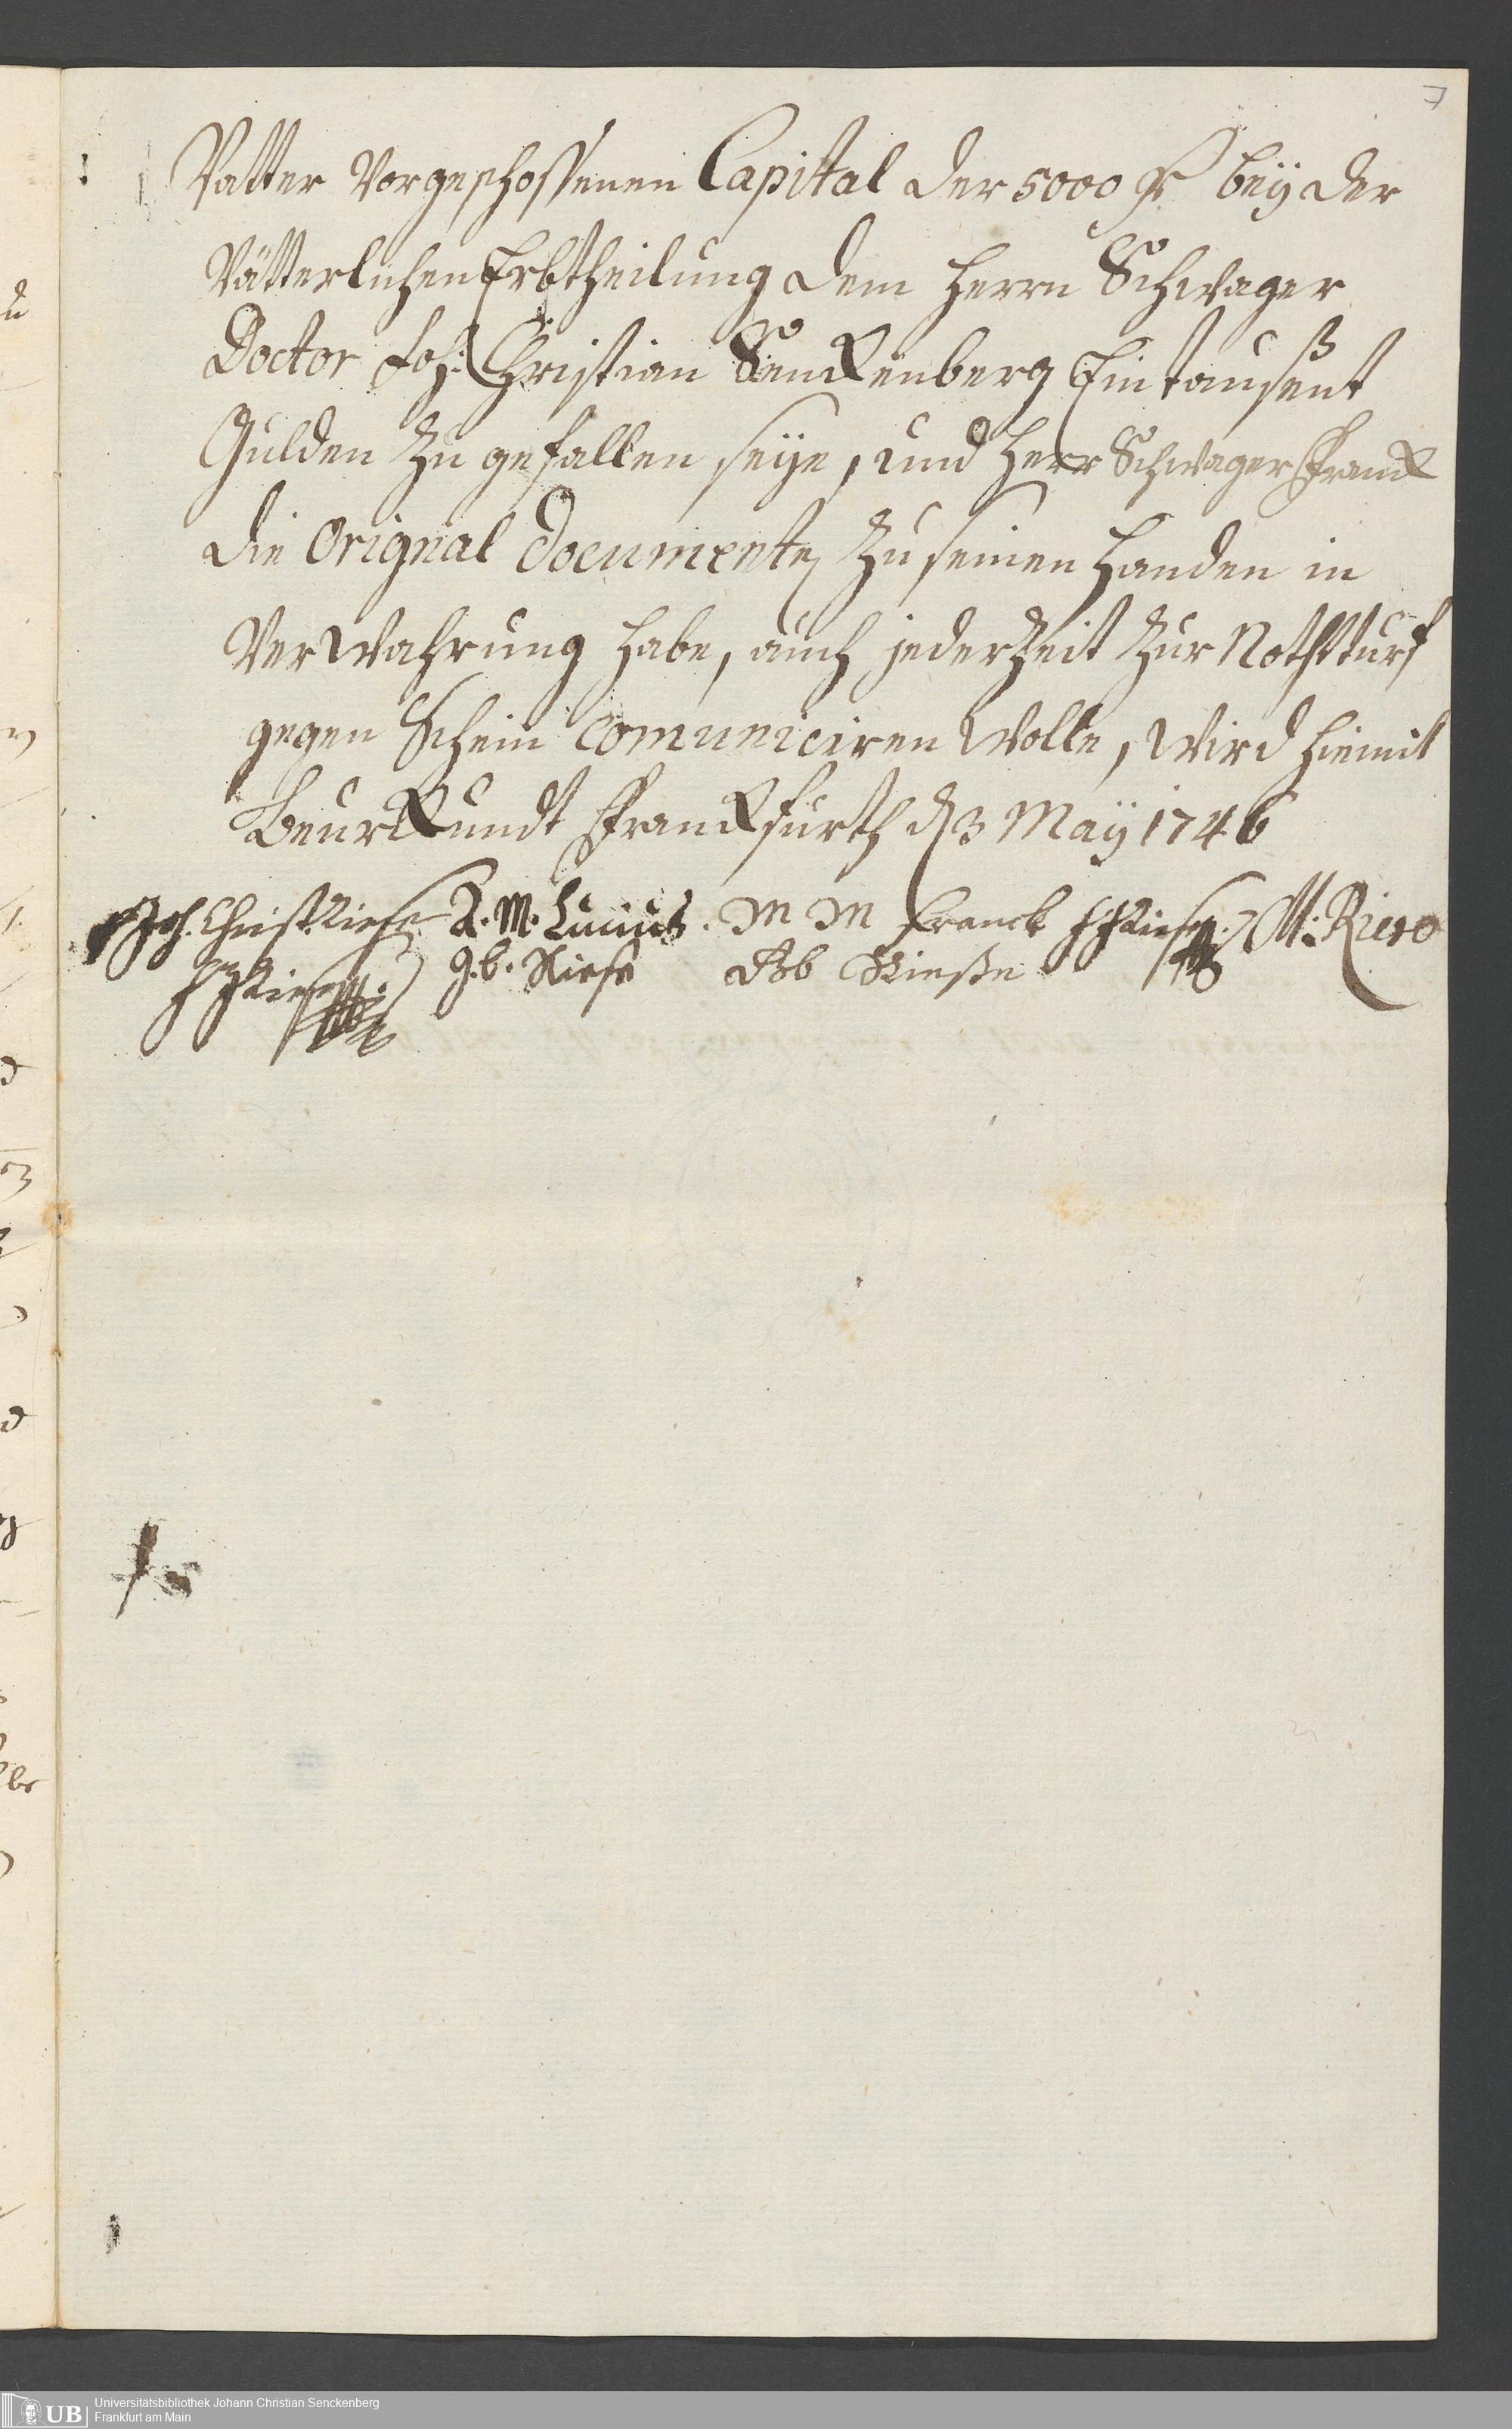 7
Vatter Vorgeschossenen Capital der 5000 fl beÿ der
Vätterlichen Erbtheilung dem Herrn Schwager
Doctor Joh: Christian Senckenberg Eintaußent
Gulden zu gefallen seÿe, und Herr Schwager Franck
die Orignal Documente zu seinen Handen in
Verwahrung habe, auch jederzeit zur Nothtturf
gegen Schein comuniciren wolle, wird hiemit
Beurkundt Franckfurth d 3 Maÿ 1746
Joh. Christ. Riese A. M. Lucius. M M Franck M: Riese
g. b. Riese geb Rieße
Universitätsbibliothek Johann Christian Senckenberg
Frankfurt am Main
UB